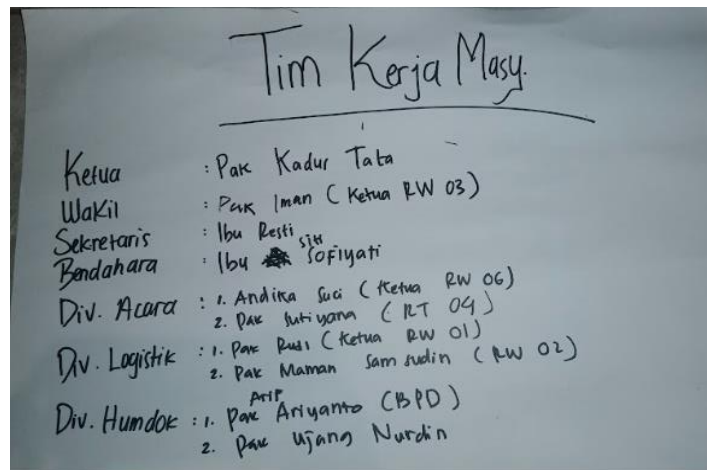 Tim Kerja Masy.
Ketua : Pak Kadur Tata
Wakil : Pak Iman (Ketua RW 03)
Sekretaris : Ibu Resti
Bendahara : Ibu Siti Sofiyati
Div. Acara : 1. Andika Suci (Ketua RW 06)
2. Pak Sutiyana (RT 04)
Div. Logistik : 1. Pak Rusi (Ketua RW 01)
2. Pak Maman Samsudin (RW 02)
Div. Humdok : 1. Pak Arip Ariyanto (BPD)
2. Pak Ujang Nurdin